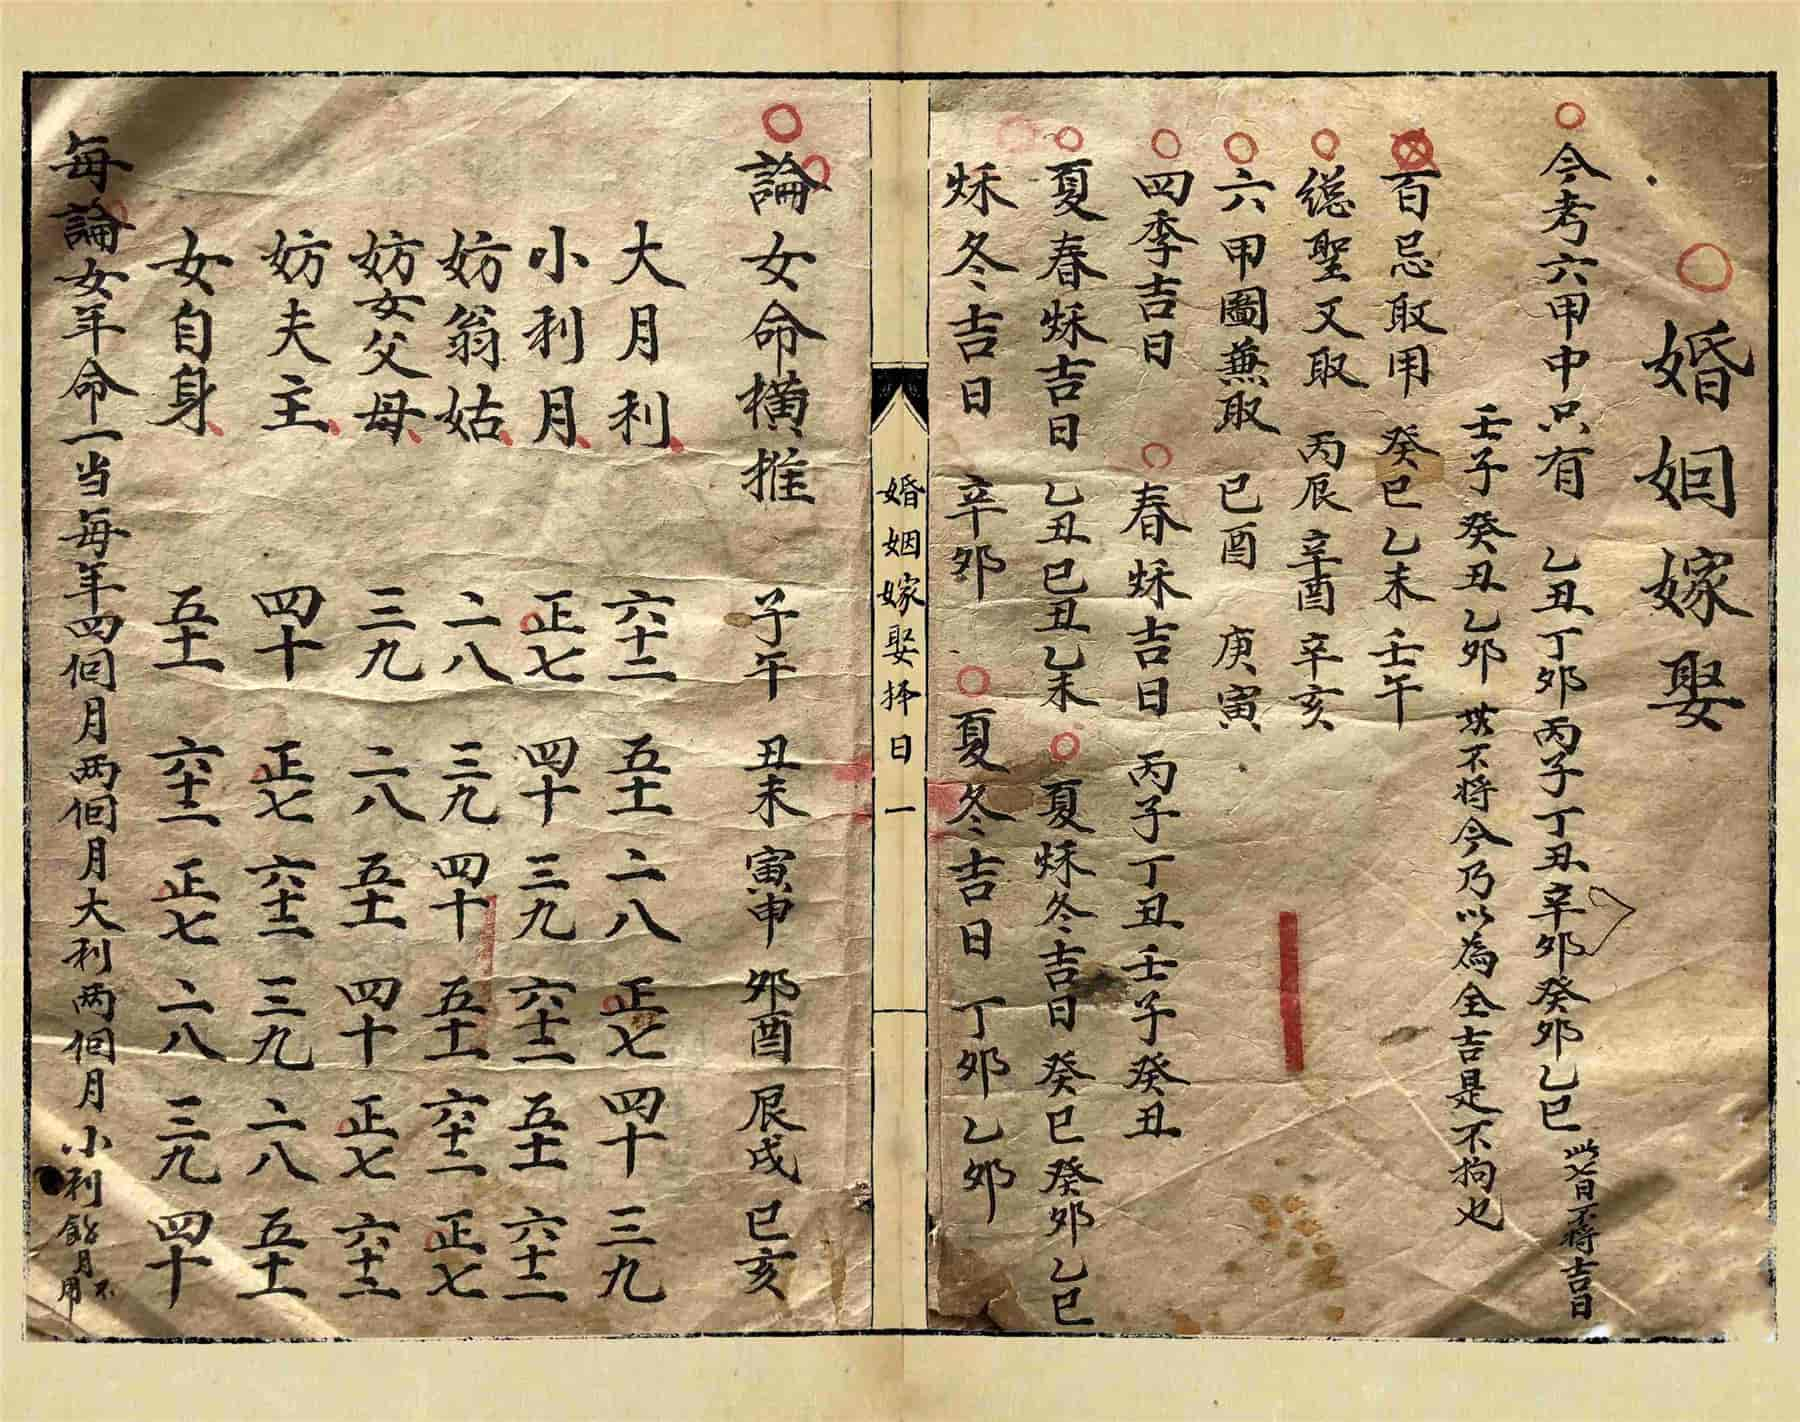 婚姻嫁娶
今考六甲中只有 乙丑丁夘丙子丁丑辛夘癸夘乙巳 以七日不将吉日
壬子癸丑乙夘 不将今乃以為全吉是不拘也
百忌取用 癸巳乙未壬午
总聖又取 丙辰辛酉辛亥
六甲圖兼取 已酉 庚寅
四季吉日 春秌吉日 丙子丁丑壬子癸丑
夏春秌吉日 乙丑巳丑乙未 夏秌冬吉日癸巳癸夘乙巳
秌冬吉日 辛夘 夏冬吉日 丁夘乙夘
婚姻嫁娶择日 一
論女命横推 子午 丑未 寅申 夘酉 辰戌 巳亥
大月利 六十二 五十一 二八 正七 四十 三九
小利月 正七 四十 三九 六十二 五十一 六十二
妨翁姑 二八 三九 四十 五十一 六十二 正七
妨女父母 三九 二八 五十一 四十 正七 六十二
妨夫主 四十 正七 六十二 三九 二八 五十一
女自身 五十一 六十二 正七 二八 三九 四十
每論女年命一当每年四個月两個月大利两個月小利餘月不用